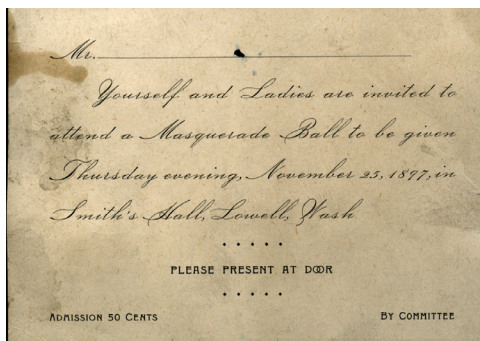 Mr.
Yourself and Ladies are invited to
attend a Masquerade Ball to be given
Thursday evening, November 25, 1897, in
Smith's Hall, Lowell, Wash
PLEASE PRESENT AT DOOR
ADMISSION 50 CENTS
BY COMMITTEE